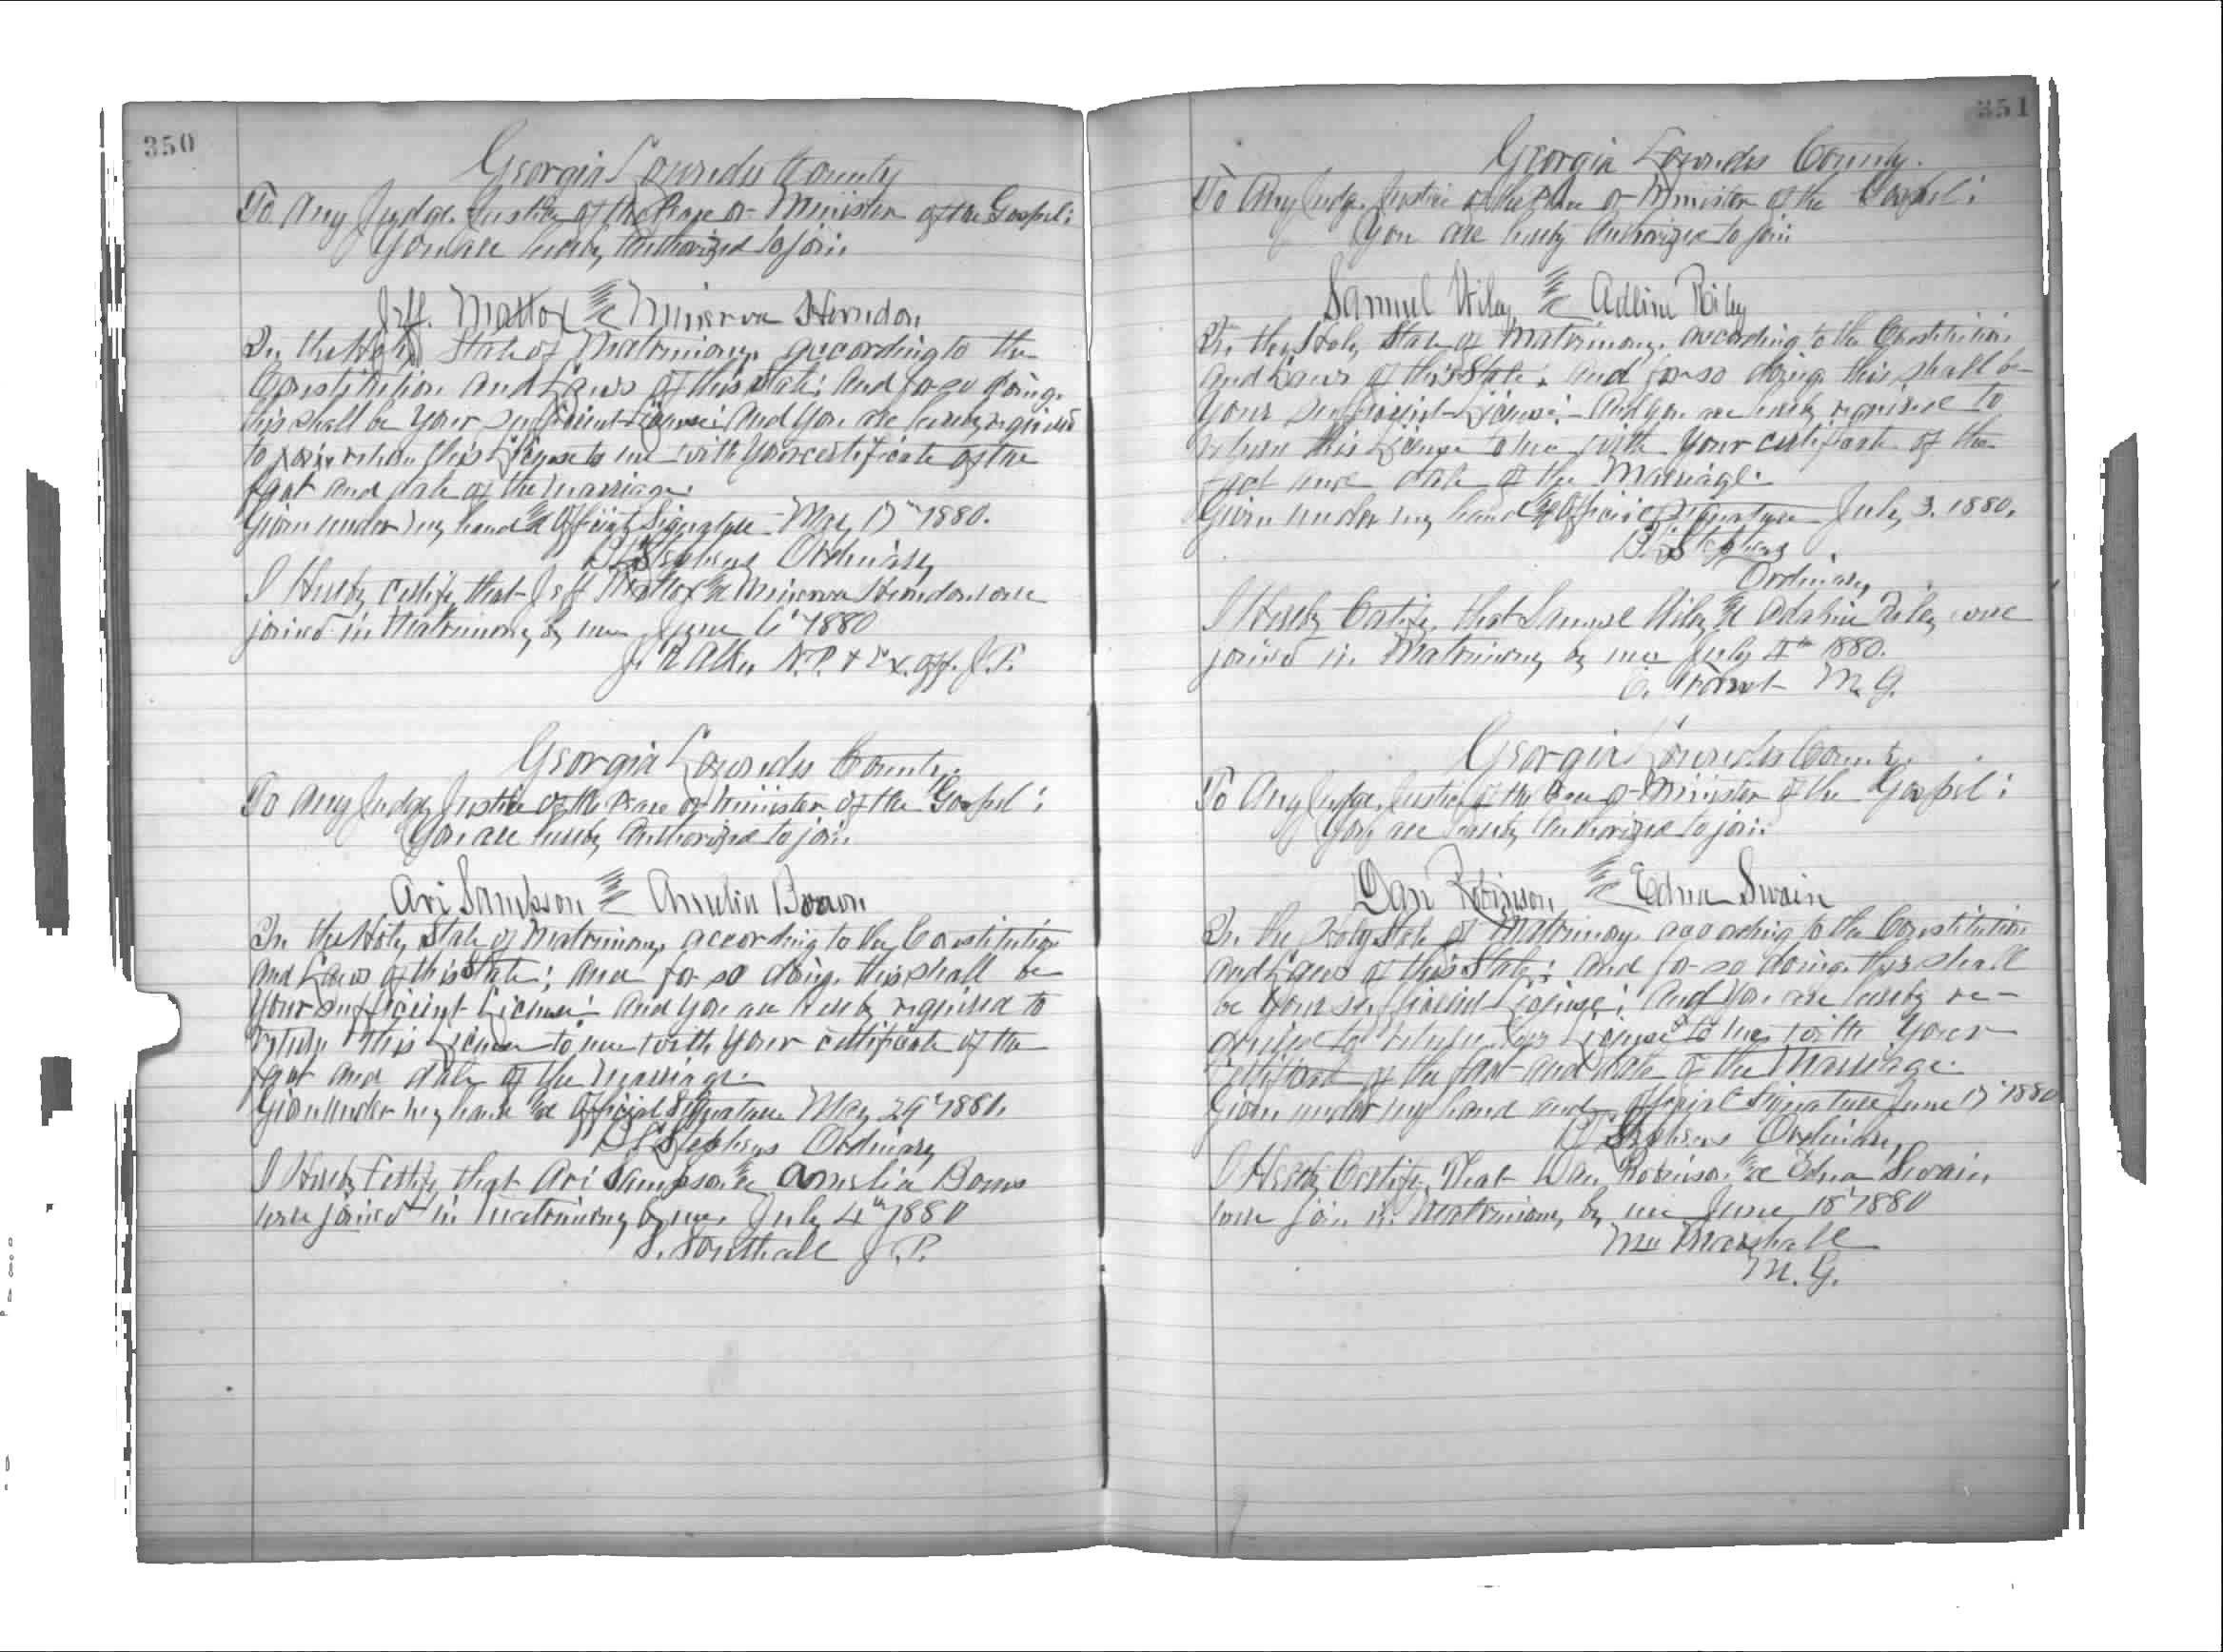 350
Georgia Lowndes County
To Any Judge, Justice of the Peace or Minister of the Gospel:
You are hereby Authorized to join
Jeff. Mattox & Minerva Herndon
In the Holy State of Matrimony, according to the
Constitution and Laws of this State: And for so doing,
this shall be Your sufficient License: And You are hereby required
to return this License to me with Your certificate of the
fact and date of the Marriage.
Given under my hand & Official Signature May 17th 1880.
Stephens Ordinary
I Hereby certify that Jeff Mattox & Minerva Herndon were
joined in Matrimony by me June 6" 1880
N.P. & Ex. off. J.P.
Georgia Lowndes County.
To Any Judge, Justice of the Peace or Minister of the Gospel:
You are hereby Authorized to join
Ari Sampson & Amelia Bowen
In the Holy State of Matrimony, according to the Constitution
And Laws of this State; And for so doing, this shall be
Your sufficient License: And You are hereby required to
return this License to me with Your certificate of the
fact and date of the Marriage.
Given Under my hand & Official Signature May 29" 1880.
Stephens Ordinary
I Hereby Certify that Ari Sampson & Amelia
were joined in Matrimony by me, July 4th 1880
Southall J.P.
351
Georgia Lowndes County.
To Any Judge, Justice of the Peace or Minister of the Gospel:
You are hereby Authorized to join
Samuel Wiley & Adline Riley
In the Holy State of Matrimony, according to the Constitution
And Laws of this State, And for so doing, this shall be
Your sufficient License: And you are hereby required to
return this License to me with Your certificate of the
fact and date of the Marriage.
Given under my hand & Official Signature July 3. 1880.
Stephens
Ordinary
I Hereby Certify, that Samuel Wiley & Adaline Riley were
joined in Matrimony by me July 4th 1880.
M.G.
Georgia Lowndes County.
To Any Judge, Justice of the Peace or Minister of the Gospel:
You are hereby Authorized to join
Dan Robinson & Edna Swain
In the Holy State of Matrimony, according to the Constitution
And Laws of this State: And for so doing, this shall
be Your sufficient License: And You are hereby re-
quired to return this License to me with Your
Certificate of the fact and date of the Marriage.
Given under my hand and official Signature June 17" 1880
Stephens Ordinary
I Hereby Certify, That Dan Robinson & Edna Swain
were join in Matrimony by me June 18" 1880
Marshall
M.G.